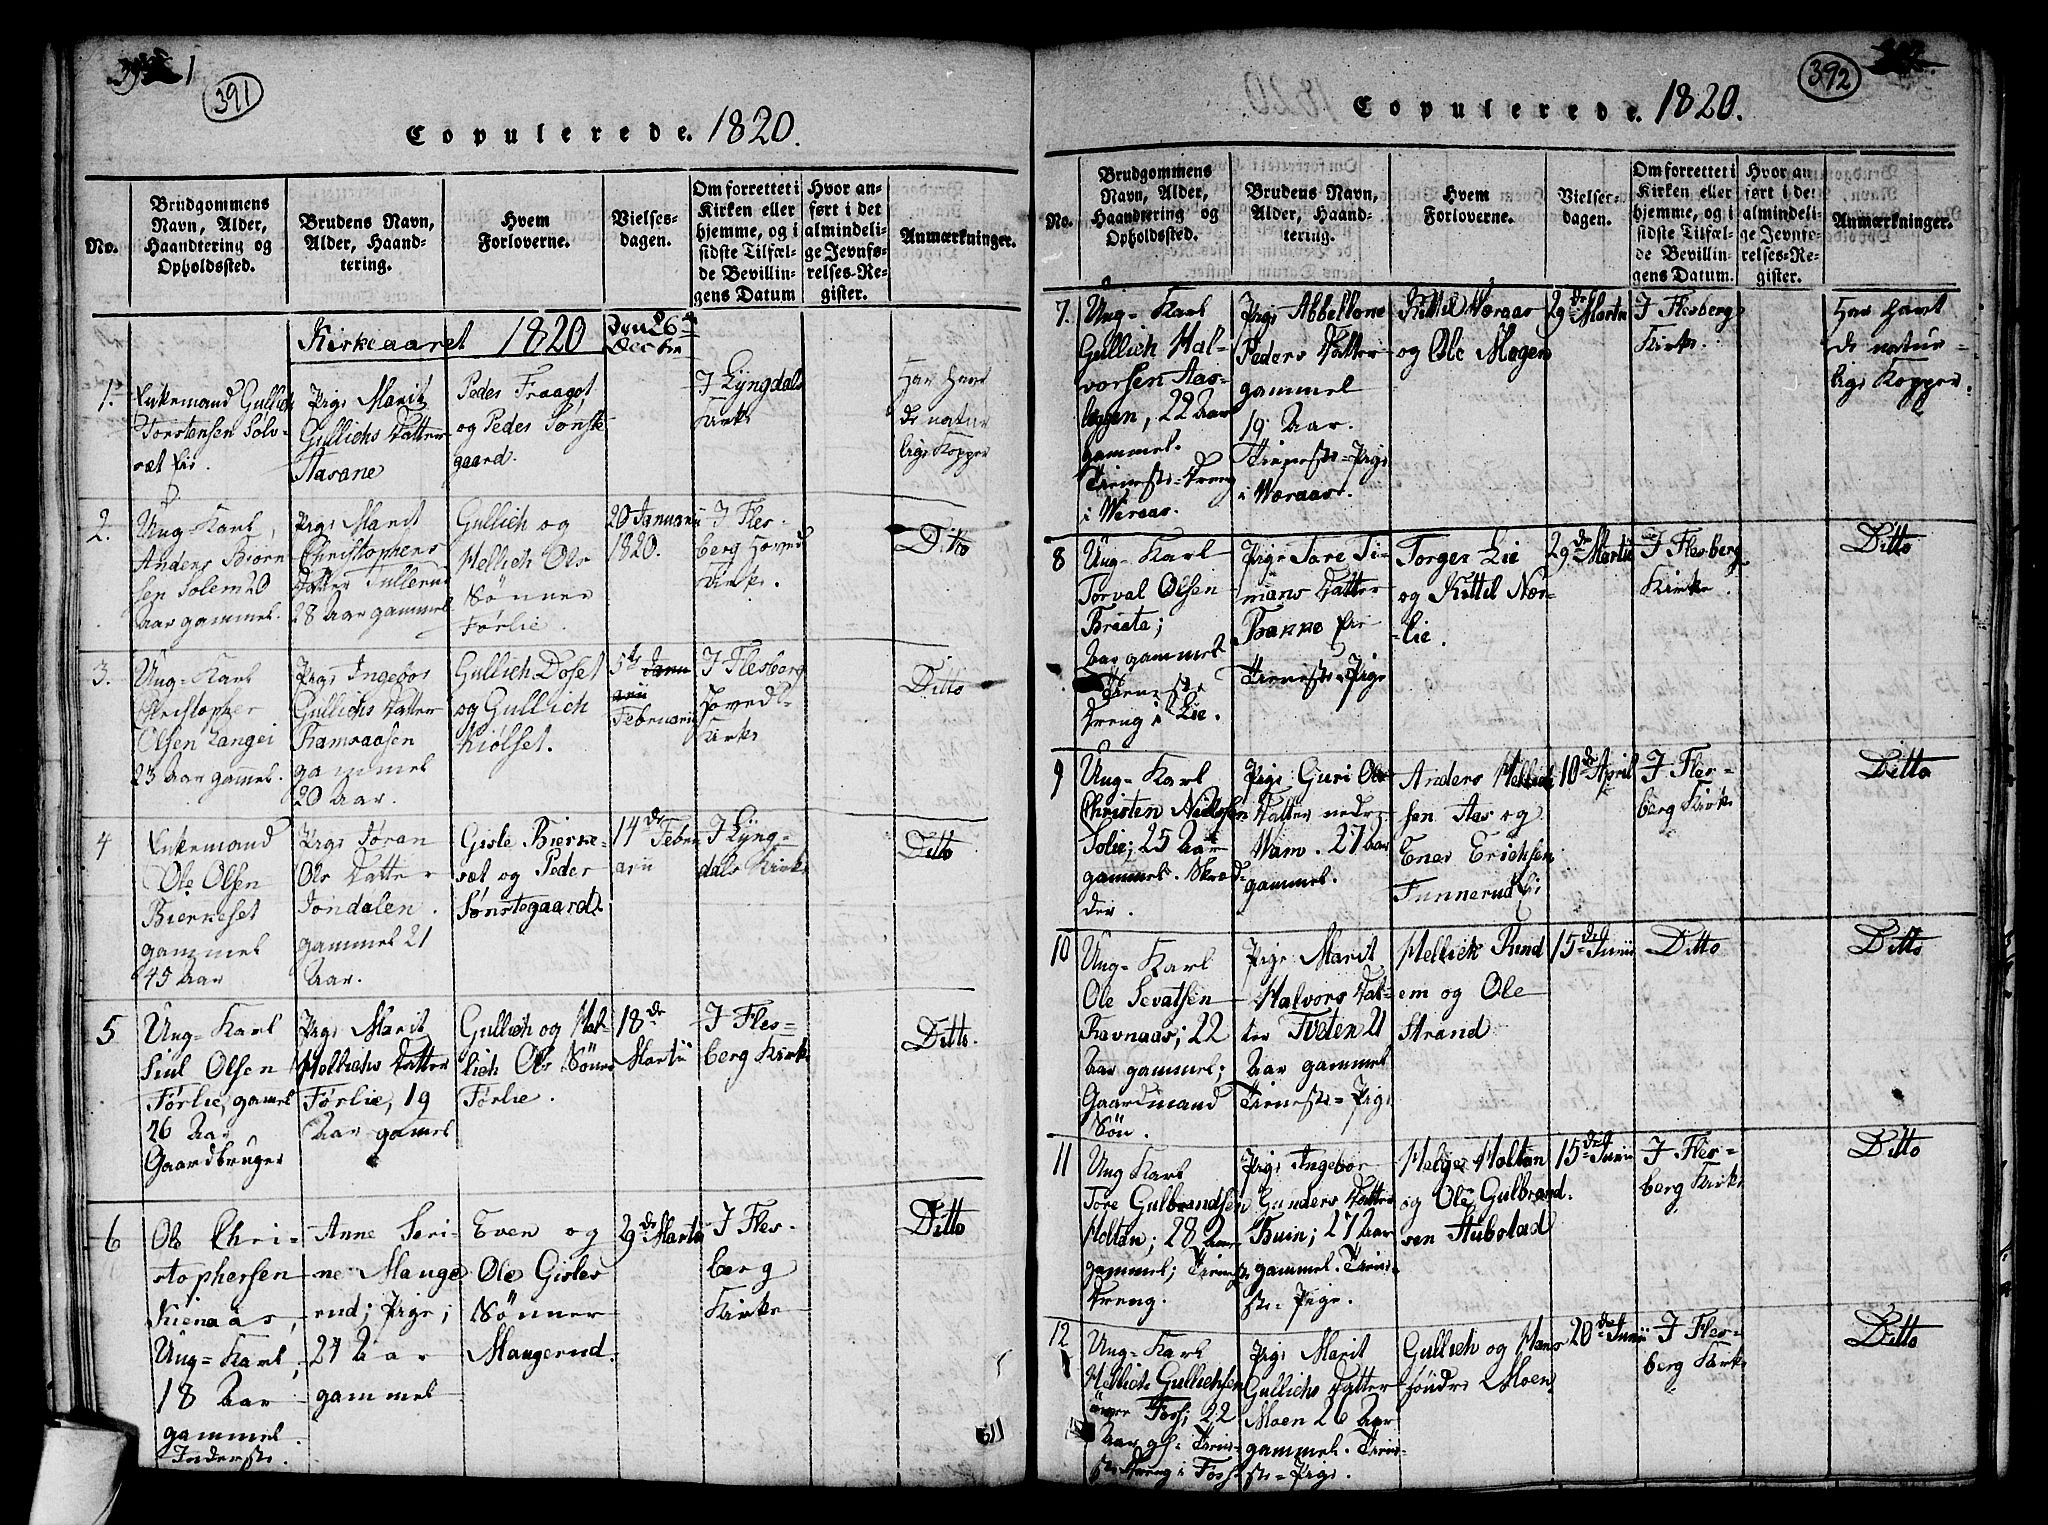 391
Copulerede. 1820.
No.
Brudgommens
Navn, Alder,
Haandtering og
Opholdssted.
Brudens Navn,
Alder, Haand-
tering.
Hvem
Forloverne.
Vielses-
dagen.
Om forrettet i
Kirken eller
hjemme, og i
sidste Tilfæl-
de Bevillin-
gens Datum
Hvor an-
ført i det
almindeli-
ge Jevnfø-
relses-Re-
gister.
Anmærkninger.
Kirkeaaret 1820
Den 26
Decbr
1.
Enkemand Gullich
Torstensen Solv-
ræt Eie.
Pige Marit
Gullichs Datter
Aasane
Peder Fraagot
og Peder Sønste
gaard.
I Lyngdals
Kirke
Har havt
de natur
lige Kopper
2.
Ung-Karl,
Anders Biørn
sen Solem 20
Aar gammel.
Pige Marit
Christophers
Datter Tullerud
28 Aar gammel
Gullich og
Hellich Ols
Sønner
Førlie.
20 Januarii
1820.
I Fles-
berg Hoved
Kirke.
Ditto
3.
Ung-Karl
Christopher
Olsen Langei
23 Aar gammel.
Pige Ingebor
Gullichs Datter
Ramsaasen
gammel
20 Aar.
Gullich Doset
og Gullich
Kiølset.
5te Janu
arii
Februarii
I Flesberg
Hoved-
Kirke
Ditto
4
Enkemand
Ole Olsen
Bierkeset
gammel
45 Aar
Pige Jøran
Ols Datter
Jondalen.
gammel 21
Aar.
Gisle Bierke-
sæt og Peder
Sønstegaard.
14de Febru
arii
I Lyng-
dals Kirke
Ditto
5
Ung-Karl
Siul Olsen
Førlie, gamel
26 Aar
Gaardbruger
Pige Marit
Hellichs Datter
Førlie, 19
Aar gamel
Gullich og Hel-
lich Ols Sønner
Førlie.
18de
Martii
I Fles-
berg Kirke
Ditto.
6
Ole Chri-
stophersen
Kienaas,
Ung-Karl,
18 Aar
gammel.
Inderste.
Anne Seri-
ne Mauge
rud; Pige;
24 Aar
gammel
Even og
Ole Gisles
Sønner
Maugerud.
29de Martii
I Fles-
berg
Kirke
Ditto
392
Copulerede. 1820.
No.
Brudgommens
Navn, Alder,
Haandtering og
Opholdssted.
Brudens Navn,
Alder, Haand-
tering.
Hvem
Forloverne.
Vielses-
dagen.
Om forrettet i
Kirken eller
hjemme, og i
sidste Tilfæl-
de Bevillin-
gens Datum.
Hvor an
ført i det
almindeli-
ge Jevnfø-
relses-Re-
gister.
Anmærkninger.
7.
Ung-Karl
Gullich Hal-
vorsen Aas-
leggen, 22 Aar
gammel.
Tieneste-Dreng
i Væraas.
Pige Abbellone
Peders Datter
gammel
19 Aar.
Tieneste-Pige
i Væraas.
Kittil Væraas
og Ole Mogen
29de Martii
I Flesberg
Kirke.
Har havt
de natur-
lige Kopper.
8
Ung-Karl
Torval Olsen
Braata;
Aar gammel
Tieneste
dreng i Lie.
Pige Tare Ti-
mans Datter
Bakke Eie
Tieneste-Pige
Torger Lie
og Kittil Nør-
lie.
29de Martii
I Flesberg
Kirke.
Ditto
9
Ung-Karl
Christen Nielssen
Solie; 25 Aar
gammel. Skræd-
der.
Pige Guri Ols
Datter nedre
Vam. 27 Aar
gammel.
Anders Hellich
sen Aas og
Ener Erichsen
Tunnerud Ei
10de April
I Fles-
berg Kirke
Ditto
10
Ung-Karl
Ole Sevatsen
Ravnaas; 22
Aar gammel;
Gaardmand
Søn.
Pige Marit
Halvors Dat-
ter Tveten 21
Aar gammel
Tieneste-Pige
Hellich Rund
em og Ole
Strand
15de Junii
Ditto
Ditto
11
Ung Karl
Tore Gulbrandsen
Holtan; 28 Aar
gammel; Tieneste
dreng.
Pige Ingebor
Gunders Datter
Buin; 27 Aar
gammel. Tiene-
ste-Pige.
Helge Holtan
og Ole Gulbrand-
sen Stubstad
15de Junii
I Fles-
berg Kirke
Ditto
12
Ung-Karl
Hellich Gullichsen
øvre Foss; 22
Aar gl. Tiene-
ste Dreng i Foss.
Pige Marit
Gullichs Datter
Moen 26 Aar
gammel. Tiene-
ste-Pige.
Gullich og Hans
søndre Moen
20de Junii
I Fles-
berg Kirke
Ditto